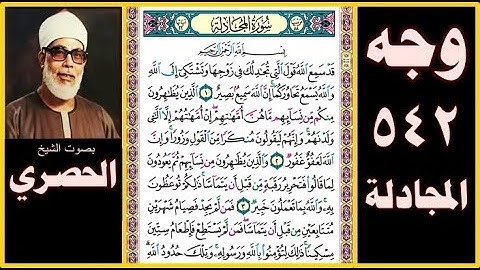 وجه
٥٤٢
المجادلة
سُورَةُ المُجَادلة
بِسْمِ اللَّهِ الرَّحْمَٰنِ الرَّحِيمِ
قَدْ سَمِعَ اللَّهُ قَوْلَ الَّتِي تُجَٰدِلُكَ فِي زَوْجِهَا وَتَشْتَكِي إِلَى اللَّهِ
وَاللَّهُ يَسْمَعُ تَحَاوُرَكُمَا إِنَّ اللَّهَ سَمِيعٌ بَصِيرٌ ١ الَّذِينَ يُظَٰهِرُونَ
مِنكُم مِّن نِّسَائِهِم مَّا هُنَّ أُمَّهَٰتِهِمْ إِنْ أُمَّهَٰتُهُمْ إِلَّا الَّٰئِي
وَلَدْنَهُمْ وَإِنَّهُمْ لَيَقُولُونَ مُنكَرًا مِّنَ الْقَوْلِ وَزُورًا وَإِنَّ
اللَّهَ لَعَفُوٌّ غَفُورٌ ٢ وَالَّذِينَ يُظَٰهِرُونَ مِن نِّسَائِهِمْ ثُمَّ يَعُودُونَ
لِمَا قَالُوا فَتَحْرِيرُ رَقَبَةٍ مِّن قَبْلِ أَن يَتَمَاسَّا ذَٰلِكُمْ تُوعَظُونَ
بِهِ وَاللَّهُ بِمَا تَعْمَلُونَ خَبِيرٌ ٣ فَمَن لَّمْ يَجِدْ فَصِيَامُ شَهْرَيْنِ
مُتَتَابِعَيْنِ مِن قَبْلِ أَن يَتَمَاسَّا فَمَن لَّمْ يَسْتَطِعْ فَإِطْعَامُ سِتِّينَ
مِسْكِينًا ذَٰلِكَ لِتُؤْمِنُوا بِاللَّهِ وَرَسُولِهِ وَتِلْكَ حُدُودُ اللَّهِ
بصوت الشيخ
الحصري